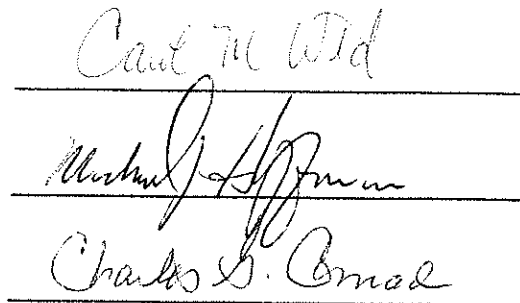 Carol M Wild
Michael J Hoffman
Charles G. Conrad